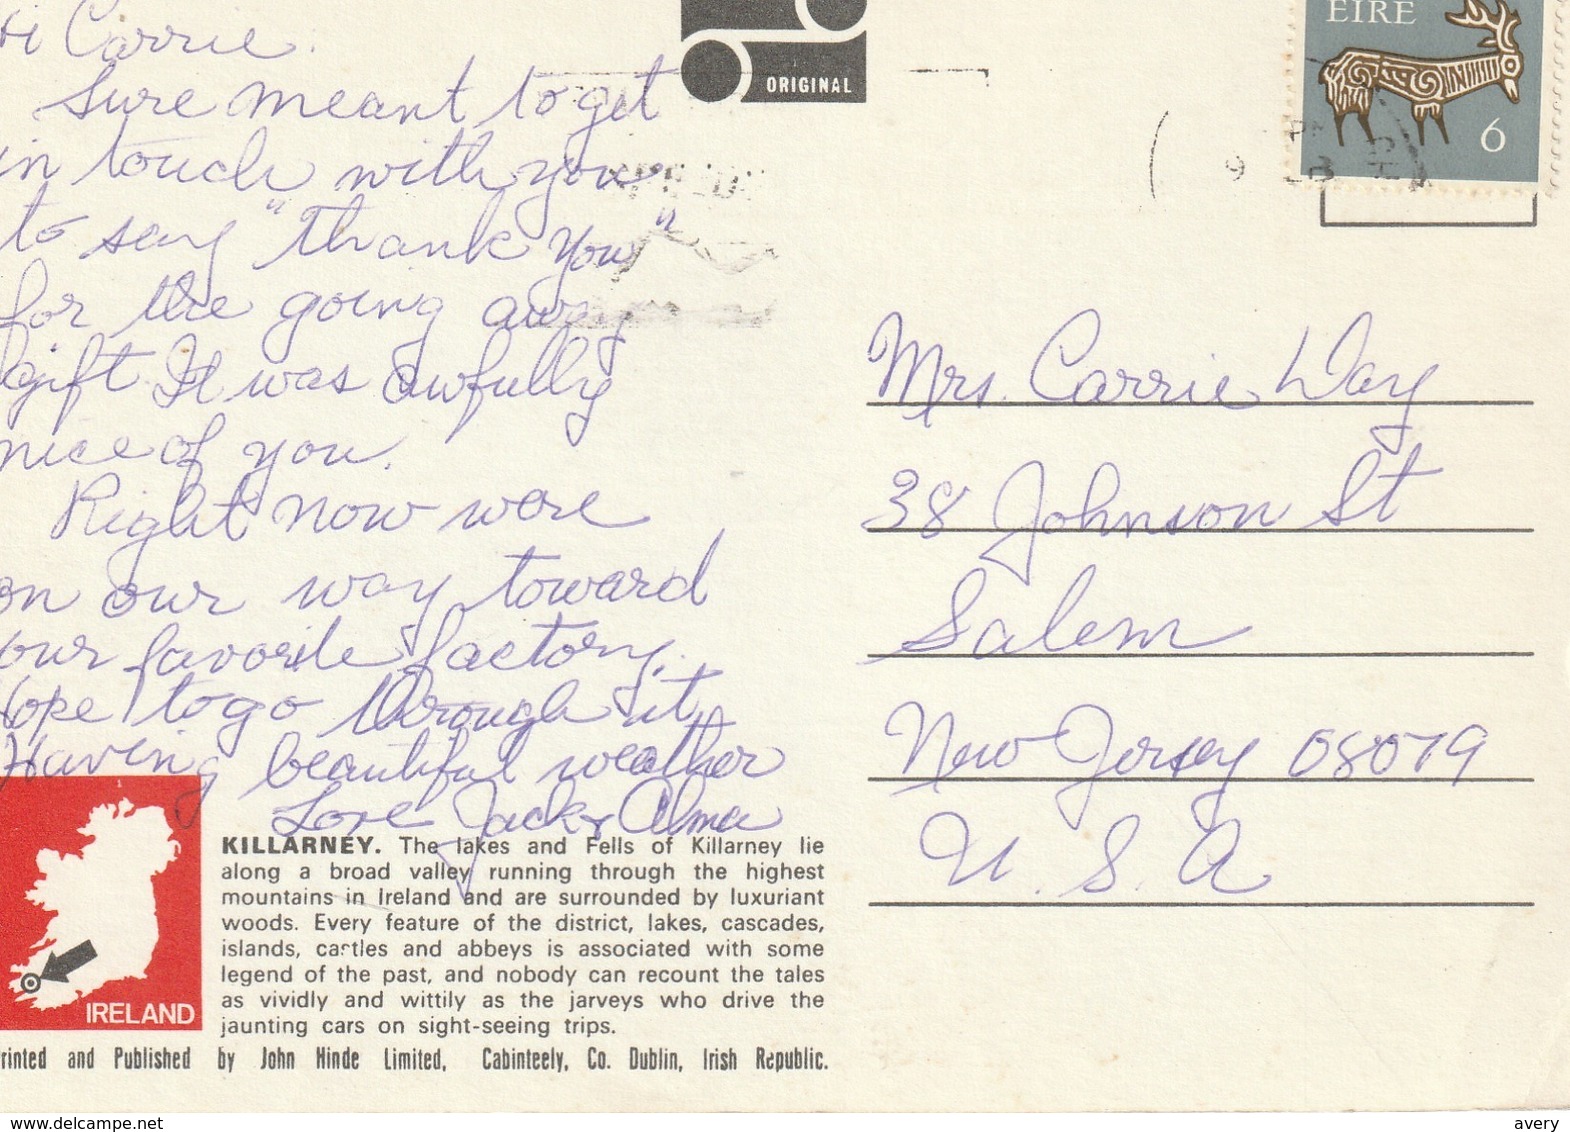 Hi Carrie.
Sure meant to get
in touch with you
to say "thank you"
for the going away
gift. It was awfully
nice of you.
Right now were
on our way toward
our favorite factory.
Hope to go through it.
Having beautiful weather
Love Jack & Alma
ORIGINAL
EIRE
6
Mrs. Carrie Day
38 Johnson St
Salem
New Jersey 08079
U.S.A
IRELAND
KILLARNEY. The lakes and Fells of Killarney lie
along a broad valley running through the highest
mountains in Ireland and are surrounded by luxuriant
woods. Every feature of the district, lakes, cascades,
islands, castles and abbeys is associated with some
legend of the past, and nobody can recount the tales
as vividly and wittily as the jarveys who drive the
jaunting cars on sight-seeing trips.
rinted and Published by John Hinde Limited, Cabinteely, Co. Dublin, Irish Republic.
www.delcampe.net
avery